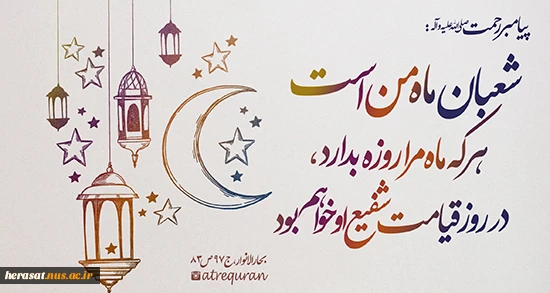 پیامبر رحمت صلی‌الله‌علیه‌وآله:
شعبان ماه من است
هر که ماه مرا روزه بدارد،
در روز قیامت شفیع او خواهم بود
بحارالانوار، ج ۹۷ ص ۸۳
atrequran
herasat.nus.ac.ir